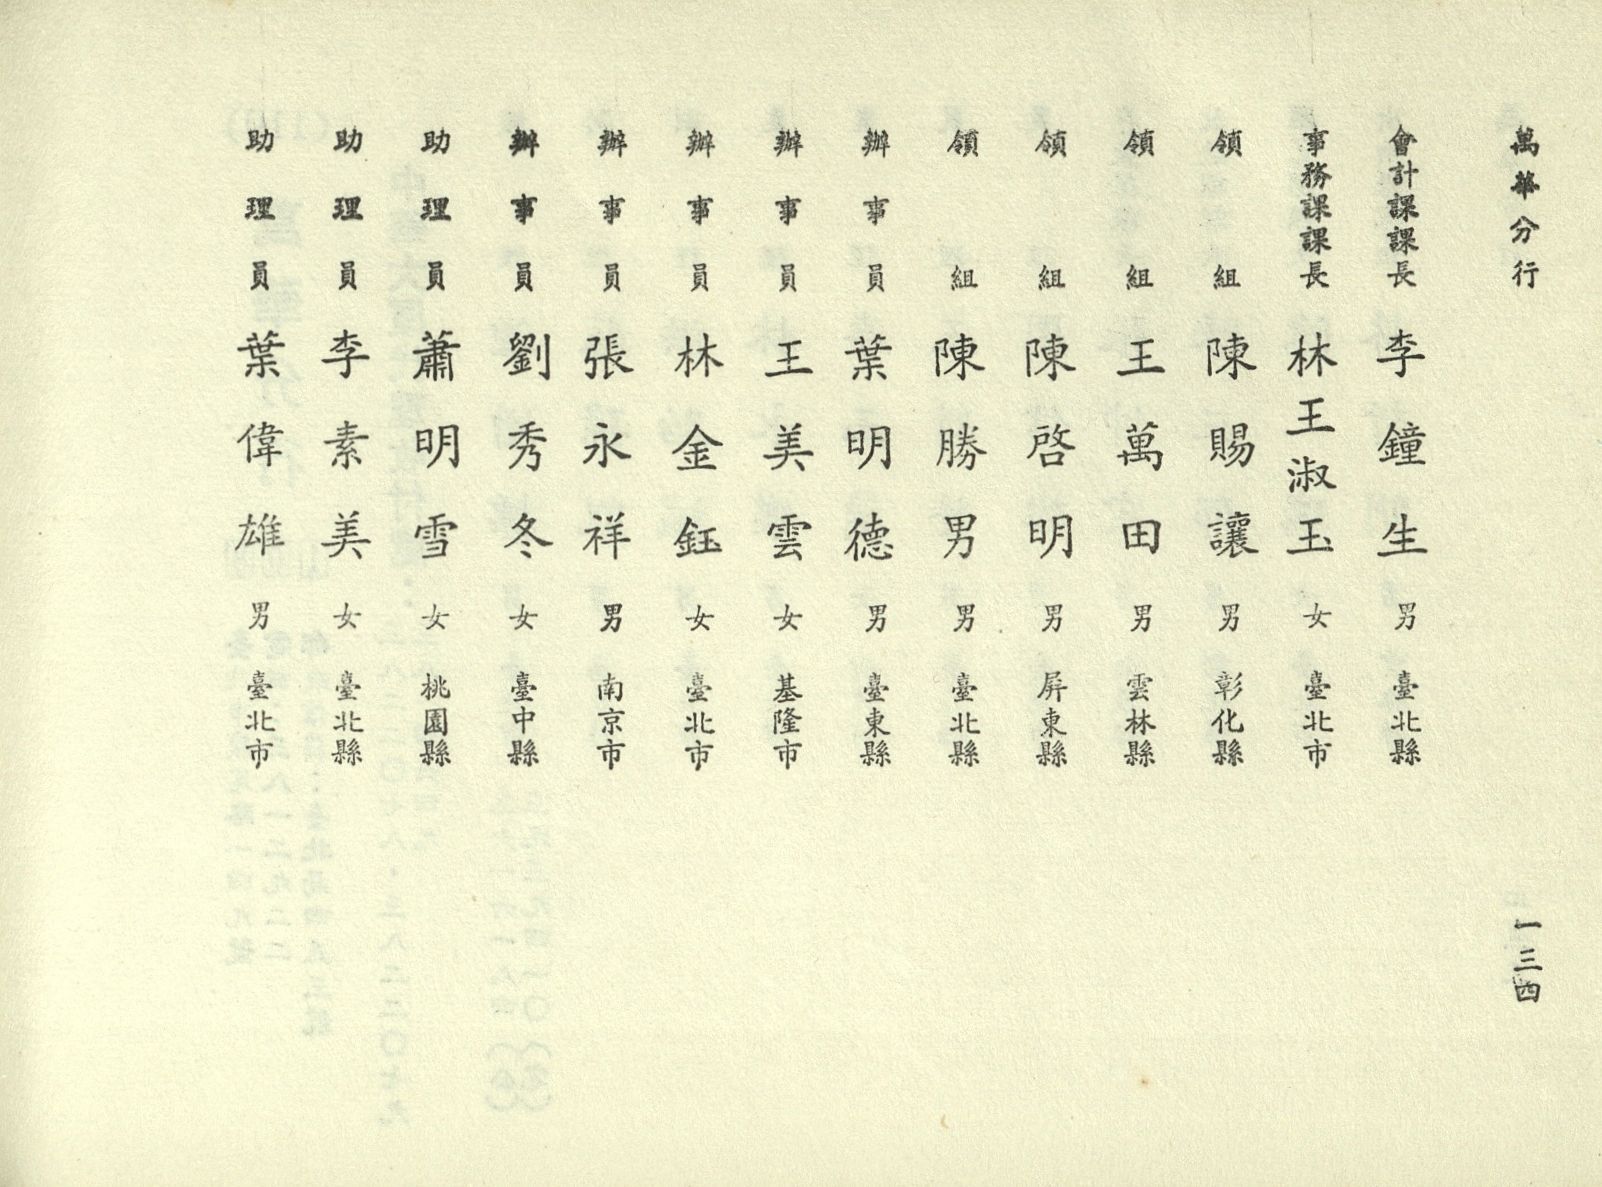 萬華分行
一三四
會計課課長 李鐘生 男 臺北縣
事務課課長 林王淑玉 女 臺北市
領組 陳賜讓 男 彰化縣
領組 王萬田 男 雲林縣
領組 陳啓明 男 屏東縣
領組 陳勝男 男 臺北縣
辦事員 葉明德 男 臺東縣
辦事員 王美雲 女 基隆市
辦事員 林金鈺 女 臺北市
辦事員 張永祥 男 南京市
辦事員 劉秀冬 女 臺中縣
助理員 蕭明雪 女 桃園縣
助理員 李素美 女 臺北縣
助理員 葉偉雄 男 臺北市